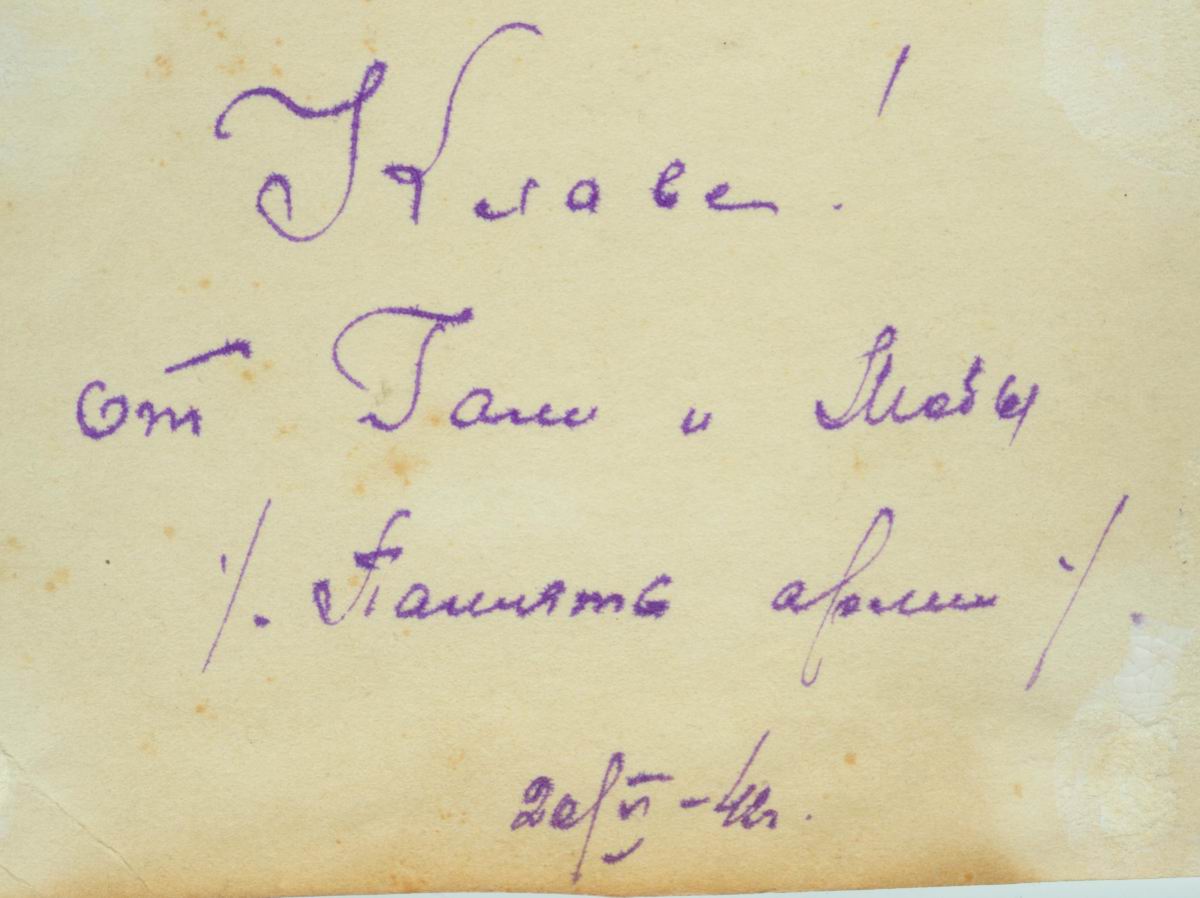 Клаве!
от Гали и
./. Память армии ./.
20/VI-42г.